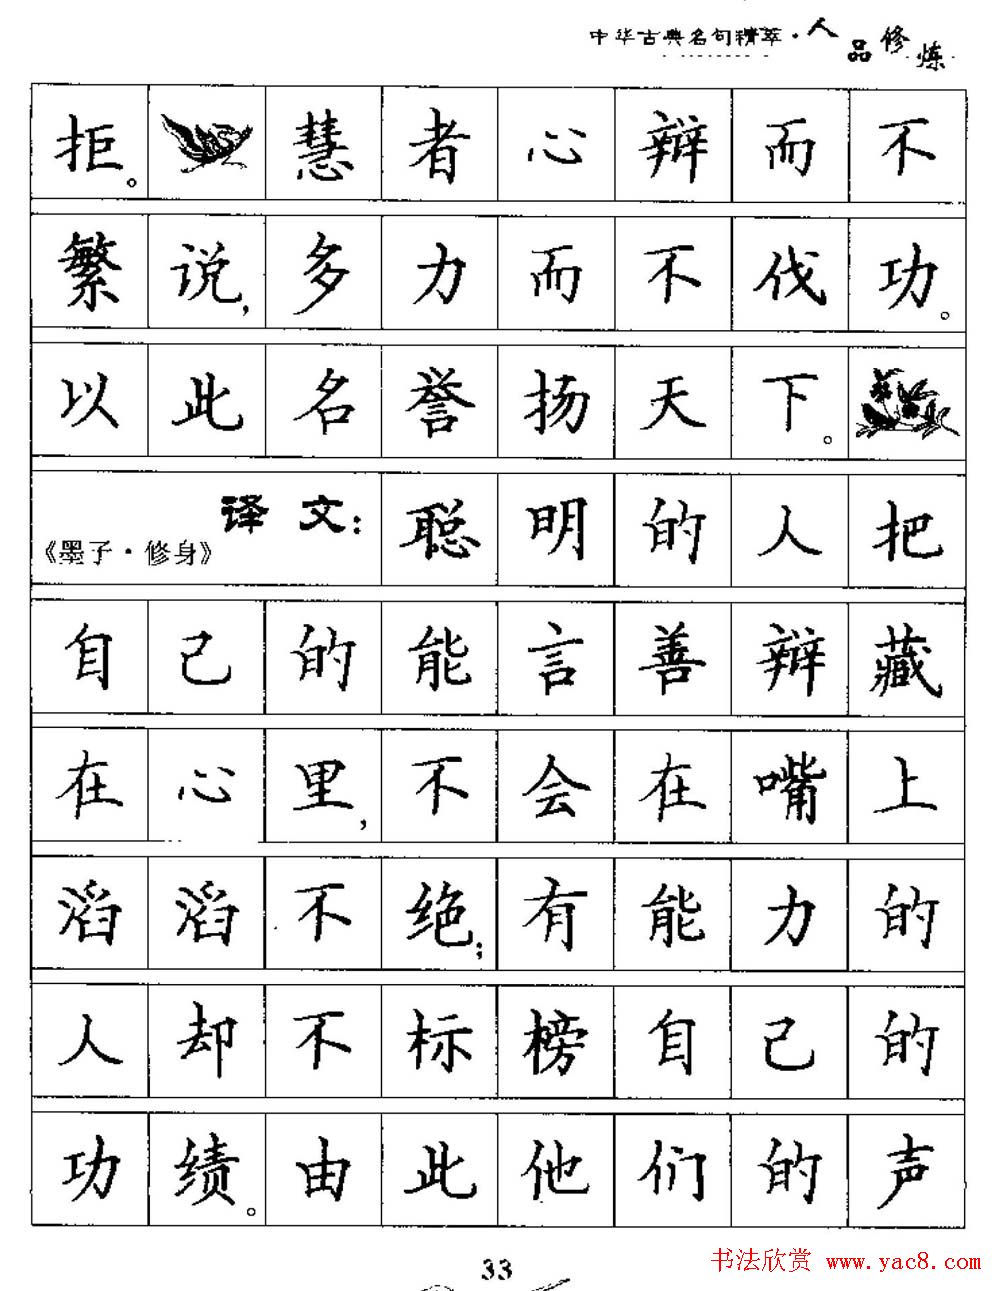 中华古典名句精萃·人品修炼
拒。慧者心辩而不
繁说，多力而不伐功。
以此名誉扬天下。
《墨子·修身》译文：聪明的人把
自己的能言善辩藏
在心里，不会在嘴上
滔滔不绝；有能力的
人却不标榜自己的
功绩。由此他们的声
33
书法欣赏 www.yac8.com